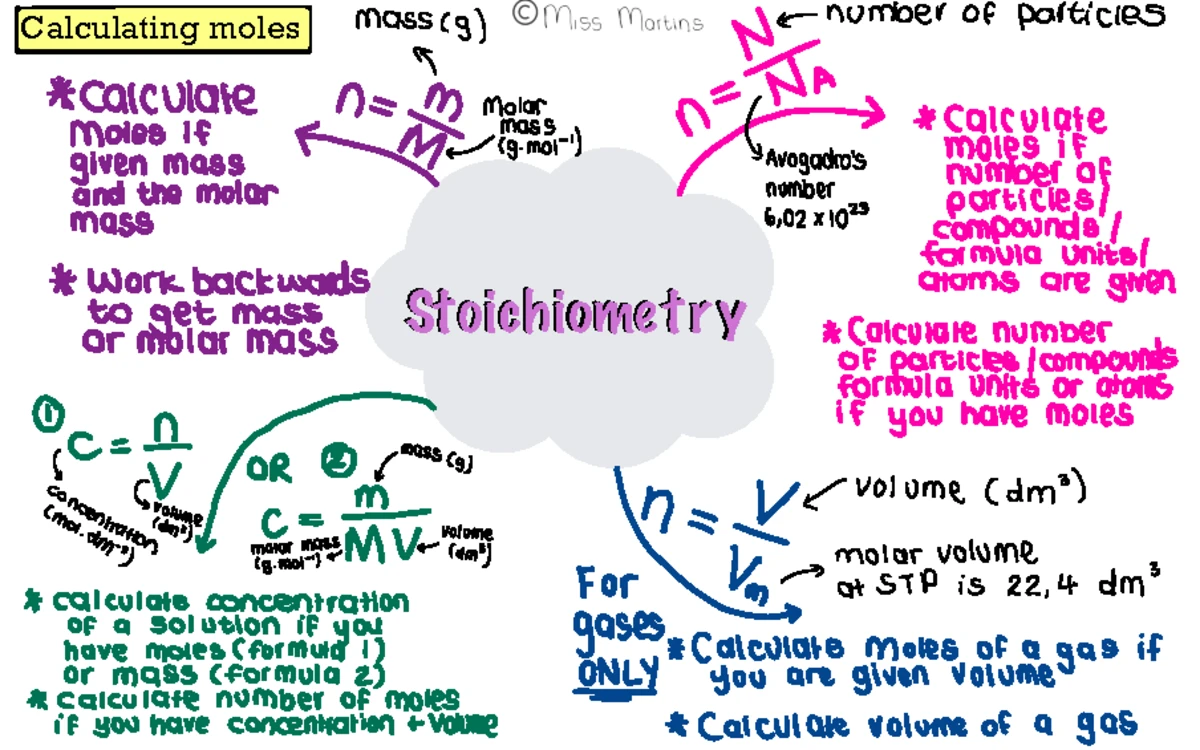 Calculating moles
mass (g)
© Miss Martins
n = m
M
Molar
mass
(g.mol⁻¹)
* Calculate
moles if
given mass
and the molar
mass
* Work backwards
to get mass
or molar mass
n = N
NA
number of particles
Avogadro's
number
6,02 x 10²³
* Calculate
moles if
number of
particles/
compounds/
formula units/
atoms are given
* Calculate number
of particles/compounds
formula units or atoms
if you have moles
Stoichiometry
①
c = n
V
concentration
(mol.dm⁻³)
volume
(dm³)
OR ②
mass (g)
c = m
MV
molar mass
(g.mol⁻¹)
volume
(dm³)
* calculate concentration
of a solution if you
have moles (formula 1)
or mass (formula 2)
* calculate number of moles
if you have concentration + volume
n = V
Vm
volume (dm³)
molar volume
at STP is 22,4 dm³
For
gases
ONLY
* Calculate moles of a gas if
you are given volume
* Calculate volume of a gas